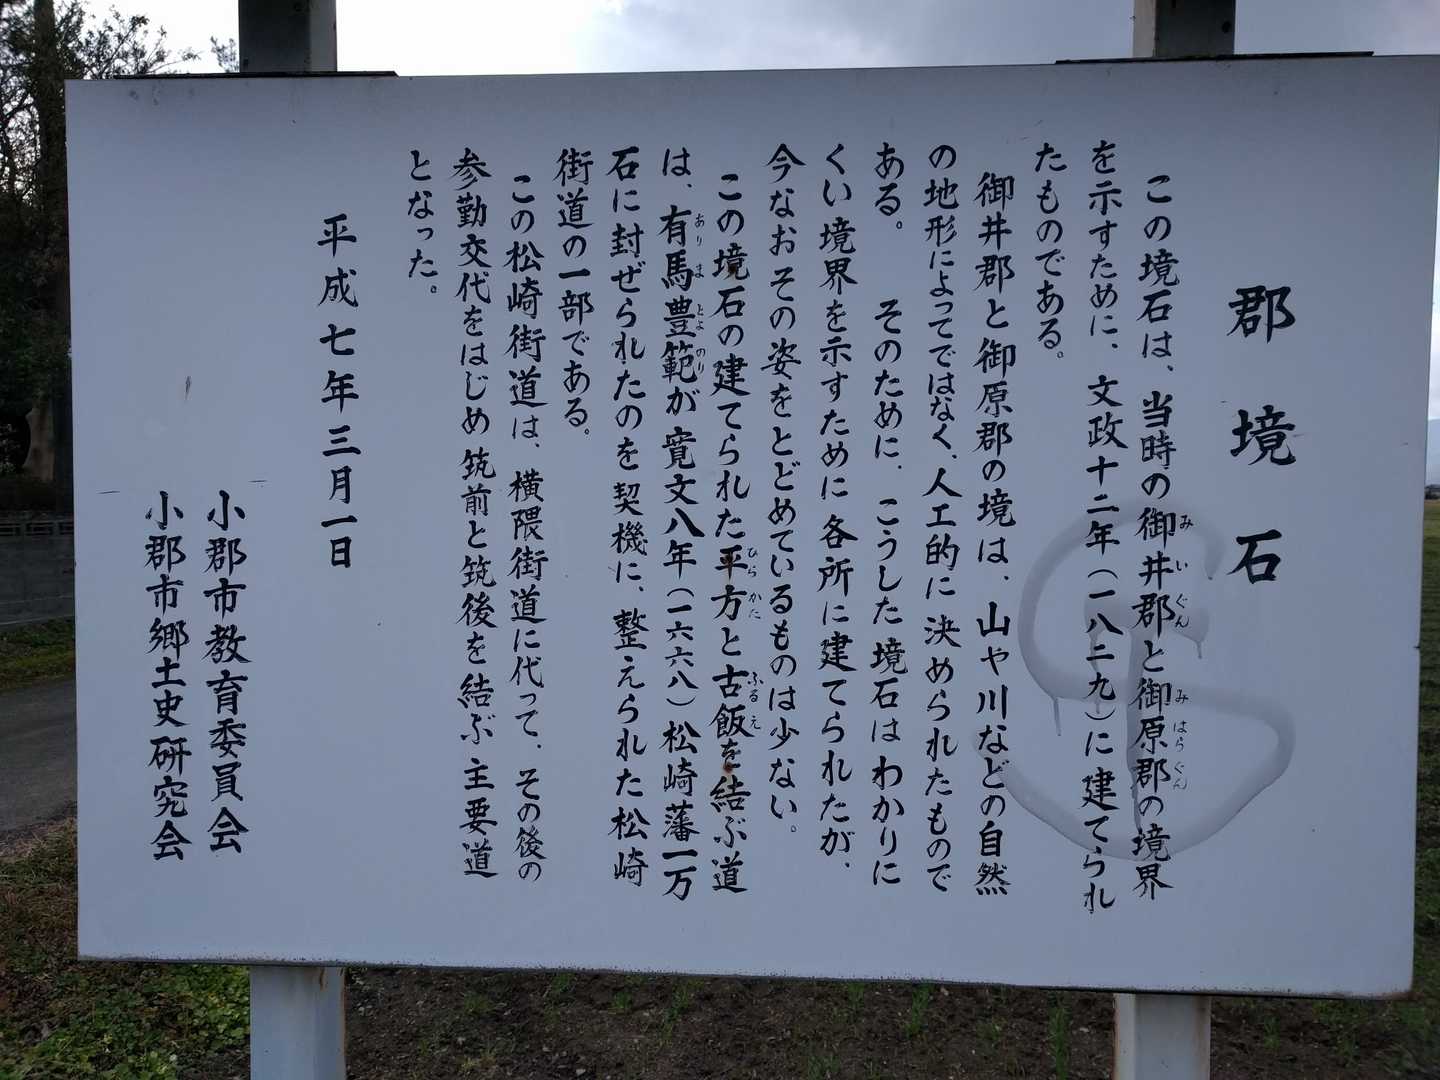 郡境石
この境石は、当時の御井郡と御原郡の境界
を示すために、文政十二年(一八二九)に建てられ
たものである。
御井郡と御原郡の境は、山や川などの自然
の地形によってではなく、人工的に決められたもので
ある。 そのために、こうした境石はわかりに
くい境界を示すために各所に建てられたが、
今なおその姿をとどめているものは少ない。
この境石の建てられた平方と古飯を結ぶ道
は、有馬豊範が寛文八年(一六六八)松崎藩一万
石に封ぜられたのを契機に、整えられた松崎
街道の一部である。
この松崎街道は、横隈街道に代って、その後の
参勤交代をはじめ筑前と筑後を結ぶ主要道
となった。
平成七年三月一日
小郡市教育委員会
小郡市郷土史研究会